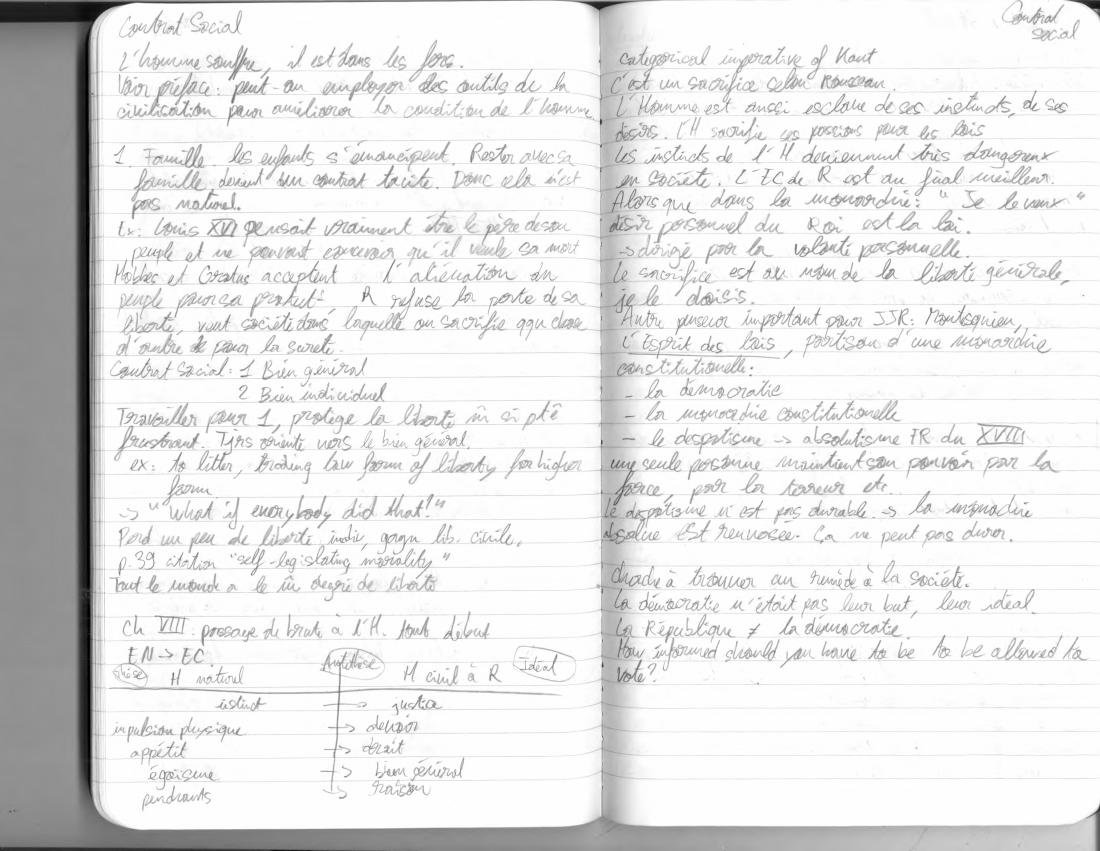 Contrat Social
L'homme souffre, il est dans les fers.
Voir préface: peut-on employer des outils de la
civilisation pour améliorer la condition de l'homme.
1. Famille. les enfants s'émancipent. Rester avec sa
famille devient un contrat tacite. Donc cela n'est
pas naturel.
Ex: Louis XVI pensait vraiment être le père de son
peuple et ne pouvait concevoir qu'il veule sa mort
Hobbes et Grotius acceptent l'aliénation du
peuple pour sa protect° R refuse la perte de sa
liberté, veut société dans laquelle on sacrifie qqu chose
d'autre pour la sureté.
Contrat social: 1 Bien général
2 Bien individuel
Travailler pour 1, protège la liberté m̂ si pt ê
frustrant. Tjrs orienté vers le bien général.
ex: to litter, trading low form of liberty for higher
form.
→ "What if everybody did that!"
Perd un peu de liberté indiv, gagn lib. civile.
p.39 citation "self-legislating morality"
Tout le monde a le m̂ degré de liberté
Ch VIII: passage de brute à l'H. tout début
EN → EC.
Thèse H naturel Antithèse H civil à R Idéal
instinct → justice
impulsion physique → devoir
appétit → droit
égoïsme → bien général
penchants → raison
Contrat
social
categorical imperative of Kant
C'est un sacrifice selon Rousseau.
L'Homme est aussi esclave de ses instincts, de ses
désirs. L'H sacrifie ses passions pour les lois
Les instincts de l'H deviennent très dangereux
en société. L'EC de R est au final meilleur.
Alors que dans la monarchie: "Je le veux"
désir personnel du Roi est la loi.
→ dirigé par la volonté personnelle.
Le sacrifice est au nom de la liberté générale,
je le choisis.
Autre penseur important pour JJR: Montesquieu,
L'Esprit des lois, partisan d'une monarchie
constitutionelle:
- la démocratie
- la monarchie constitutionelle
- le despotisme → absolutisme FR du XVIII
une seule personne maintient son pouvoir par la
force, par la terreur etc.
le despotisme n'est pas durable. → la monarchie
absolue est renversée. Ça ne peut pas durer.
Cherche à trouver un remède à la société.
La démocratie n'était pas leur but, leur idéal.
La République ≠ la démocratie.
How informed should you have to be to be allowed to
vote?